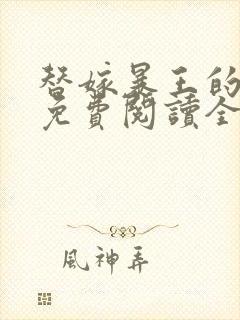 替嫁暴王的
免費閱讀全
風神弄